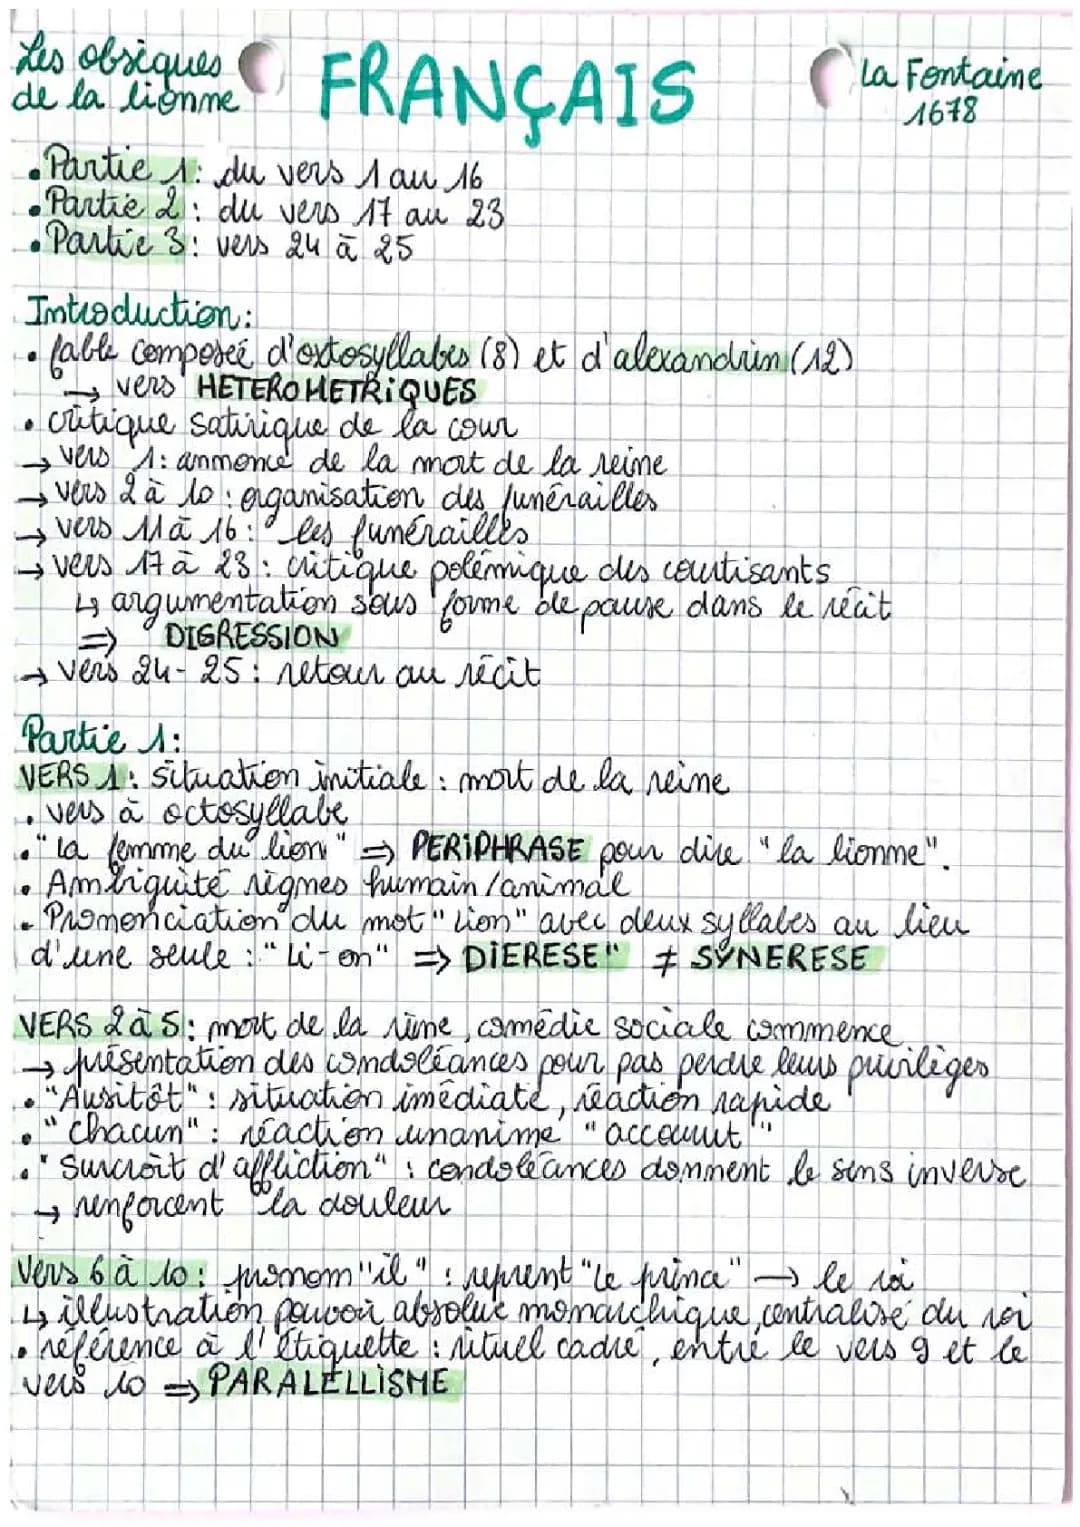 Les obsèques
de la lionne
FRANÇAIS
La Fontaine
1678
• Partie 1: du vers 1 au 16
• Partie 2: du vers 17 au 23
• Partie 3: vers 24 à 25
Introduction:
• fable composée d'octosyllabes (8) et d'alexandrin (12)
→ vers HÉTÉROMETRIQUES
• critique satirique de la cour
→ vers 1: annonce de la mort de la reine
→ vers 2 à 10: organisation des funérailles
→ vers 11 à 16: les funérailles
→ vers 17 à 23: critique polémique des courtisants
↳ argumentation sous forme de pause dans le récit
⇒ DIGRESSION
→ vers 24-25: retour au récit
Partie 1:
VERS 1: situation initiale: mort de la reine
• vers à octosyllabe
• "La femme du lion" ⇒ PERIPHRASE pour dire "la lionne".
• Ambiguité règnes humain/animal
• Prononciation du mot "Lion" avec deux syllabes au lieu
d'une seule: "Li-on" ⇒ DIERESE" ≠ SYNERESE
VERS 2 à 5: mort de la reine, comédie sociale commence
→ présentation des condoléances pour pas perdre leurs privilèges
• "Ausitôt": situation imédiate, réaction rapide
• "chacun": réaction unanime "accourut"
• "Surcroît d'affliction": condoléances donnent le sens inverse
→ renforcent la douleur
Vers 6 à 10: pronom "il": reprent "Le prince" → le roi
↳ illustration pouvoir absolue monarchique, centralisé du roi
• référence à l'étiquette: rituel cadré, entre le vers 9 et le
vers 10 ⇒ PARALELLISME